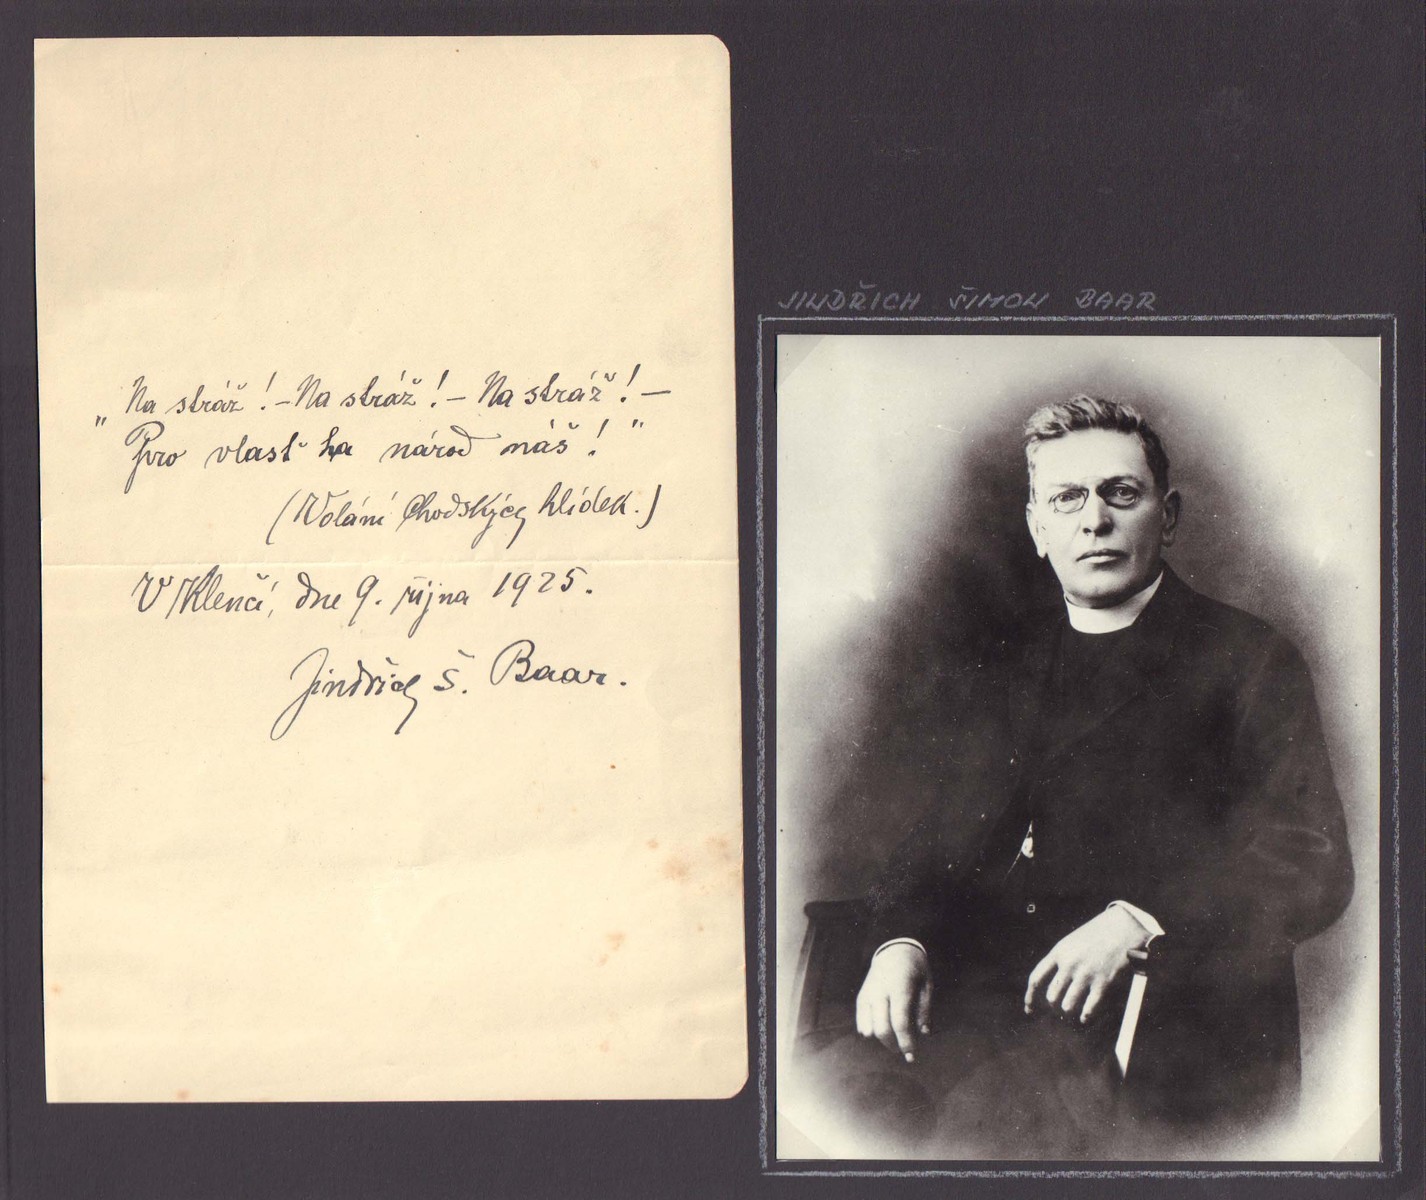 „Na stráž! – Na stráž! – Na stráž! –
Pro vlasť a národ náš!"
(Volání Chodských hlídek.)
V Klenčí, dne 9. října 1925.
Jindřich Š. Baar.
JINDŘICH ŠIMON BAAR